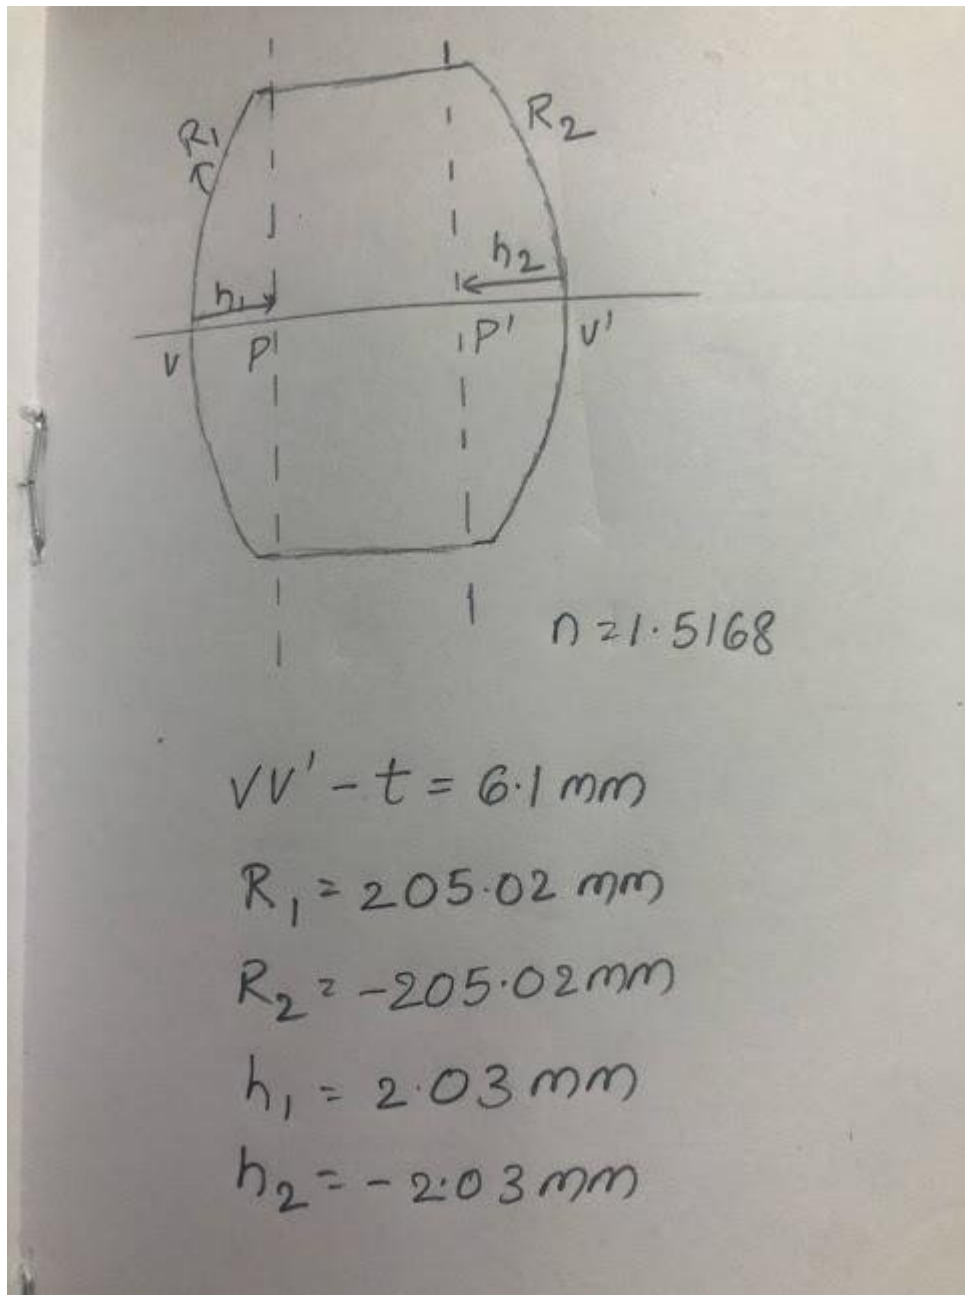 R1
R2
h2
h1
V
P
P'
V'
n=1.5168
VV' - t = 6.1 mm
R1 = 205.02 mm
R2 = -205.02mm
h1 = 2.03 mm
h2 = -2.03 mm